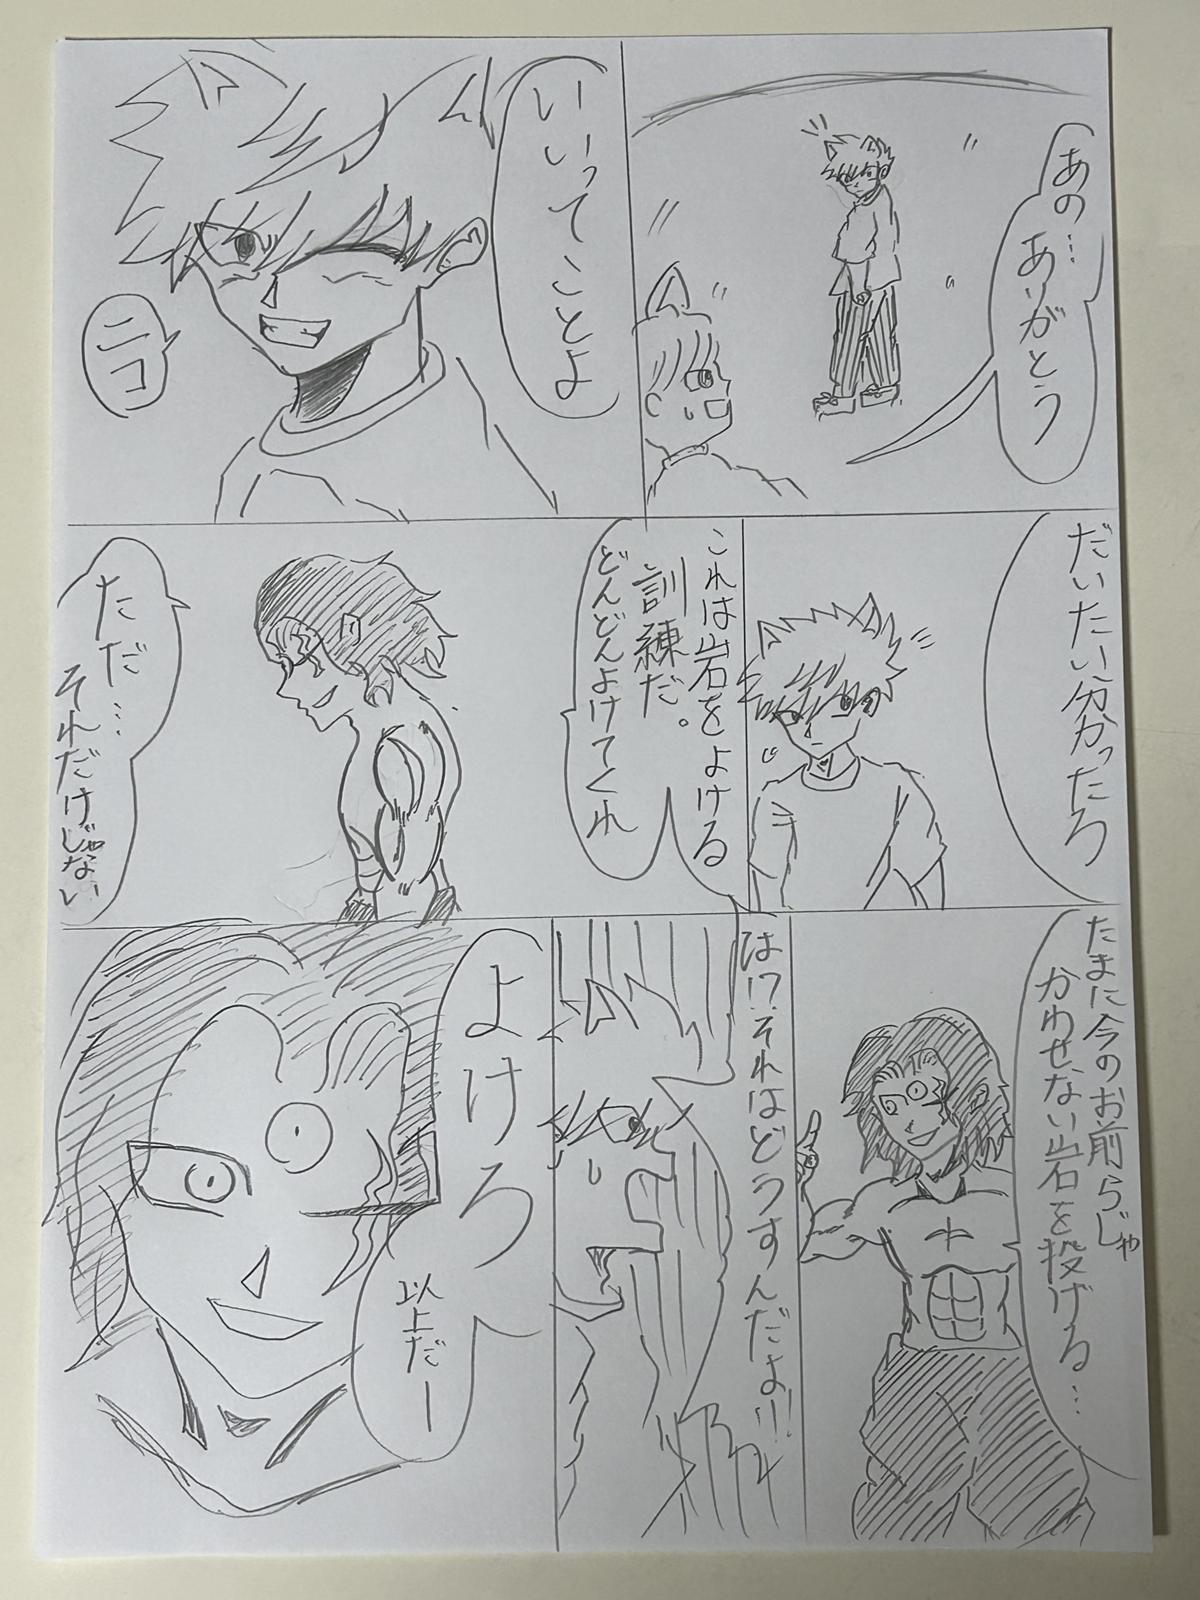 あの…
ありがとう
いいってことよ
ニコ
だいたい分かったろ
これは岩をよける
訓練だ。
どんどんよけてくれ
ただ…
それだけじゃない
たまに今のお前らじゃ
かわせない岩を投げる…
は!?それはどうすんだよ!!
よけろ
以上だー